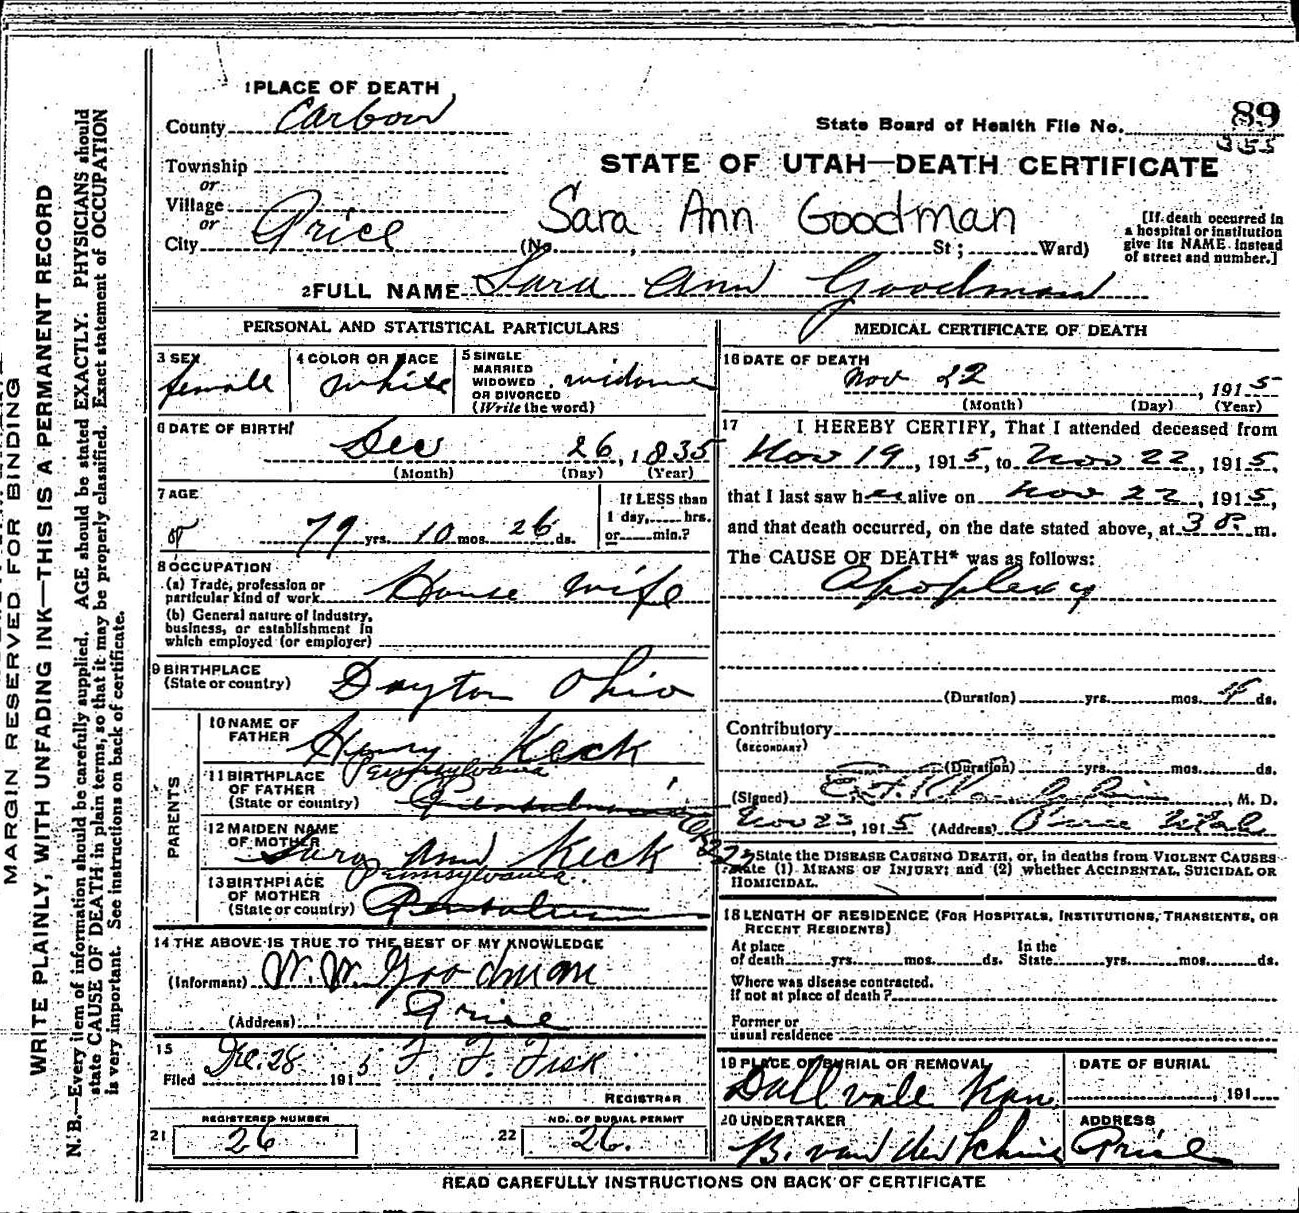 1 PLACE OF DEATH
County Carbon
State Board of Health File No. 89
355
Township
or
Village
or
City Price
STATE OF UTAH—DEATH CERTIFICATE
Sara Ann Goodman
(No. , St ; Ward)
[If death occurred in
a hospital or institution
give its NAME instead
of street and number.]
2 FULL NAME Sara Ann Goodman
PERSONAL AND STATISTICAL PARTICULARS
3 SEX
female
4 COLOR OR RACE
white
5 SINGLE
MARRIED
WIDOWED
OR DIVORCED
(Write the word)
widow
6 DATE OF BIRTH
Dec 26, 1835
(Month) (Day) (Year)
7 AGE
79 yrs. 10 mos. 26 ds.
If LESS than
1 day, hrs.
or min.?
8 OCCUPATION
(a) Trade, profession or
particular kind of work House wife
(b) General nature of industry,
business, or establishment in
which employed (or employer)
9 BIRTHPLACE
(State or country) Dayton Ohio
PARENTS
10 NAME OF
FATHER Henry Keck
11 BIRTHPLACE
OF FATHER
(State or country)
Pennsylvania
12 MAIDEN NAME
OF MOTHER Sara Ann Keck
13 BIRTHPLACE
OF MOTHER
(State or country)
Pennsylvania
14 THE ABOVE IS TRUE TO THE BEST OF MY KNOWLEDGE
(Informant) W. W. Goodman
(Address) Price
15
Filed Dec. 28 1915 F. F. Fisk
REGISTRAR
REGISTERED NUMBER
21 26
NO. OF BURIAL PERMIT
22 26.
MEDICAL CERTIFICATE OF DEATH
16 DATE OF DEATH
Nov 22, 1915
(Month) (Day) (Year)
17 I HEREBY CERTIFY, That I attended deceased from
Nov 19, 1915, to Nov 22, 1915,
that I last saw her alive on Nov 22, 1915,
and that death occurred, on the date stated above, at 3 P. m.
The CAUSE OF DEATH* was as follows:
Apoplexy
(Duration) yrs. mos. 4 ds.
Contributory
(SECONDARY)
(Duration) yrs. mos. ds.
(Signed) , M. D.
Nov 23, 1915 (Address) Price Utah
State the DISEASE CAUSING DEATH, or, in deaths from VIOLENT CAUSES
state (1) MEANS OF INJURY; and (2) whether ACCIDENTAL, SUICIDAL OR
HOMICIDAL.
18 LENGTH OF RESIDENCE (FOR HOSPITALS, INSTITUTIONS, TRANSIENTS, OR
RECENT RESIDENTS)
At place
of death yrs. mos. ds.
In the
State yrs. mos. ds.
Where was disease contracted,
if not at place of death?
Former or
usual residence
19 PLACE OF BURIAL OR REMOVAL
Dallvale Kan.
DATE OF BURIAL
, 191
20 UNDERTAKER
B. van der
ADDRESS
Price
READ CAREFULLY INSTRUCTIONS ON BACK OF CERTIFICATE
MARGIN RESERVED FOR BINDING
WRITE PLAINLY, WITH UNFADING INK—THIS IS A PERMANENT RECORD
N. B.—Every item of information should be carefully supplied. AGE should be stated EXACTLY. PHYSICIANS should
state CAUSE OF DEATH in plain terms, so that it may be properly classified. Exact statement of OCCUPATION
is very important. See instructions on back of certificate.